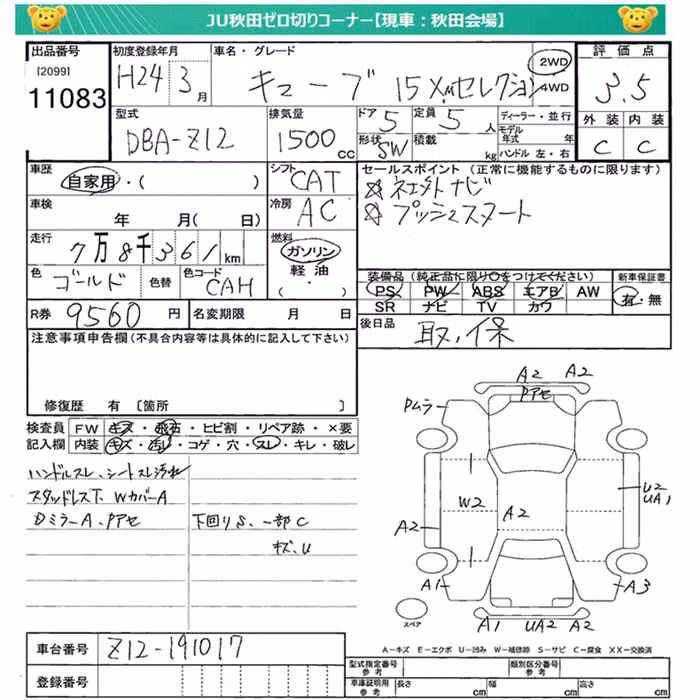 JU秋田ゼロ切りコーナー【現車：秋田会場】
出品番号 初度登録年月 車名・グレード 2WD 4WD 評価点
[2099]
11083 H24 3月 キューブ 15X,Mセレクション 3.5
外装 内装
C C
型式 排気量 ドア 定員 ディーラー・並行
DBA-Z12 1500cc 5 5人 モデル年式 年
形状 積載 ハンドル 左・右
SW kg
車歴 シフト セールスポイント（正常に機能するものに限ります）
自家用・（ ） CAT ☆インテリキー ナビ
車検 冷房 ☆プッシュスタート
年 月（ 日） AC
走行 燃料
7万8千361km ガソリン 軽油（・ ）
色 色替 色コード
ゴールド CAH
装備品（純正品に限り○をつけてください） 新車保証書
PS PW ABS エアB AW 有・無
SR ナビ TV カワ
R券 9560円 名変期限 月 日
後日品 取、保
注意事項申告欄（不具合内容等は具体的に記入して下さい）
修復歴 有 〔箇所 〕
検査員記入欄 FW キズ・飛石・ヒビ割・リペア跡・×要
内装 キズ・汚レ・コゲ・穴・スレ・キレ・破レ
ハンドルスレ、シートスレ汚れ
スタッドレス下、WカバーA
DミラーA、Pアセ 下回りS、一部C
キズ、U
A2 A2
Pアセ
Pムラ
W2 A2 U2
UA1
A2
A1 A3
スペア
A1 UA2 A2
A−キズ E−エクボ U−凹み W−補修跡 S−サビ C−腐食 XX−交換済
車台番号 Z12-191017
登録番号
型式指定番号 参考 類別区分番号 参考
車庫証明用 参考 長さ cm 幅 cm 高さ cm